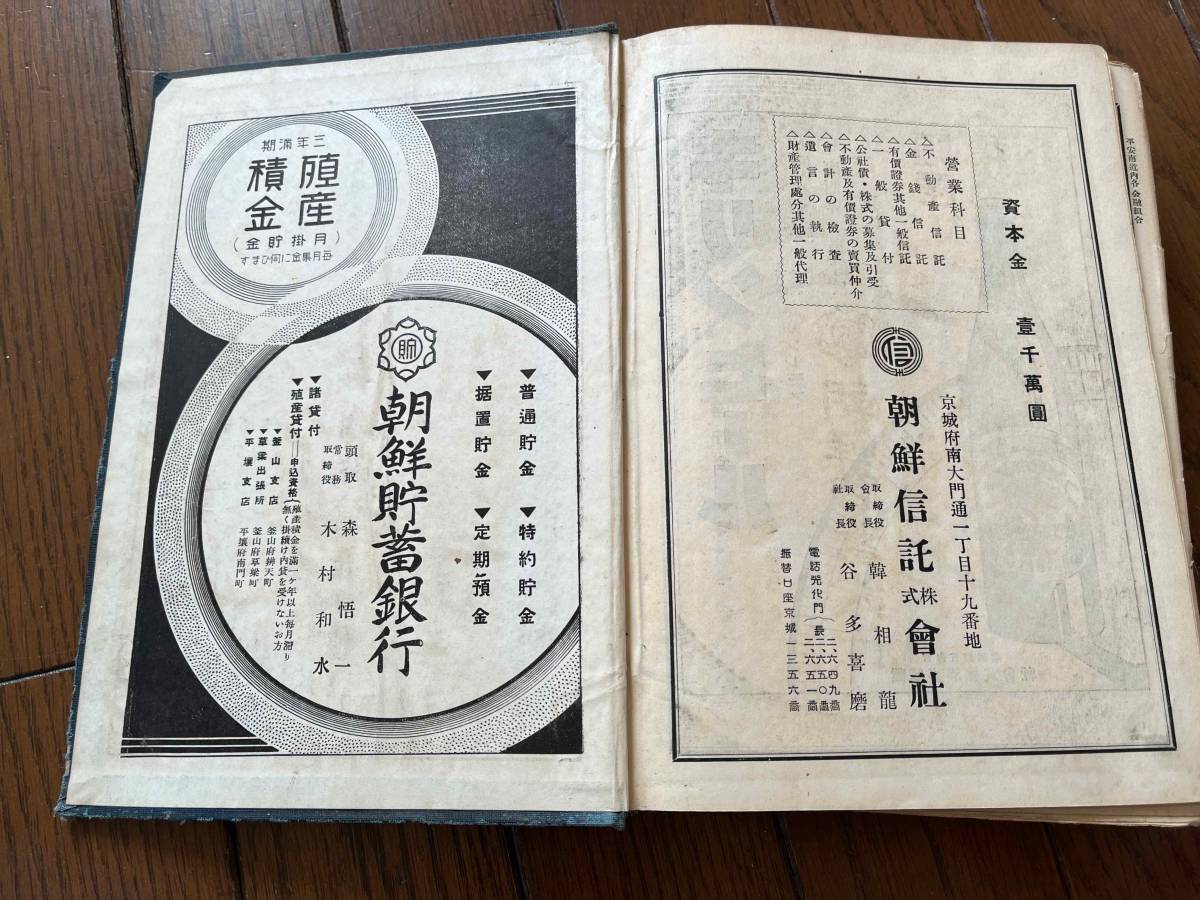 資本金 壹千萬圓
京城府南大門通一丁目十九番地
朝鮮信託株式會社
取締役會長 韓相龍
取締役社長 谷多喜磨
電話光化門(長)二、六四九番
二、六五〇番
二、六五一番
振替口座京城一三五六番
信
營業科目
△不動産信託
△金錢信託
△有價證券其他一般信託
△一般貸付
△公社債・株式の募集及引受
△不動産及有價證券の賣買仲介
△會計の檢査
△遺言の執行
△財産管理處分其他一般代理
平安南道內各金融組合
三年滿期
殖産
積金
(月掛貯金)
毎月集金に伺ひます
▼普通貯金 ▼特約貯金
▼据置貯金 ▼定期預金
貯
朝鮮貯蓄銀行
頭取 森悟一
常務取締役 木村和水
▼諸貸付
▼殖産貸付―申込資格(殖産積金を滿一ケ年以上毎月滯り
無く掛續け內貸を受けないお方
▼釜山支店 釜山府辨天町
▼草梁出張所 釜山府草梁町
▼平壤支店 平壤府南門町